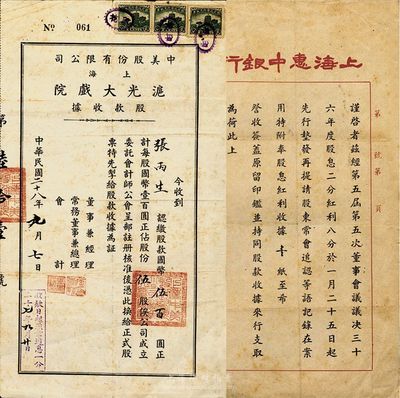 Nº 061
中美股份有限公司
上海
滬光大戲院
股款收據
今收到
張丙生 認繳股款國幣伍百圓正
計每股國幣壹百圓正佔股份伍股俟公司成立
委託會計師公會呈部註册核准後憑此換給正式股
票特先掣給股款收據為証
董事兼經理
常務董事兼總理
會計
中華民國二十八年九月七日
第陸拾壹號
上海惠中銀行
第 號第 頁
謹啓者茲經第五屆第五次董事會議議決三十
六年度股息二分紅利八分於一月二十五日起
先行墊發再提請股東常會追認等語記錄在案
用特附奉股息紅利收據卡紙至希
詧收簽蓋原留印鑑並持同股款收據來行支取
為荷此上